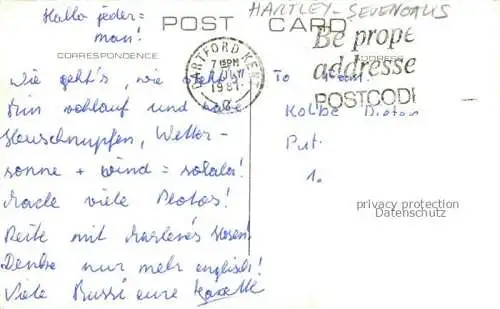 HARTLEY - SEVENOAKS
POST CARD
Hallo jeder=
man!
CORRESPONDENCE
ADDRESS
DARTFORD KENT
7 PM
1981
Be prope
addresse
POSTCODE
Wie geht's, wie steht's?
Bin wohlauf und habe
Heuschnupfen, Wetter-
sonne + wind = solala!
Mache viele Photos!
Reite mit Marlenes Hosen!
Denke nur mehr englisch!
Viele Bussi eure
To Fam.
Kolbe Dieter
Put.
1.
privacy protection
Datenschutz